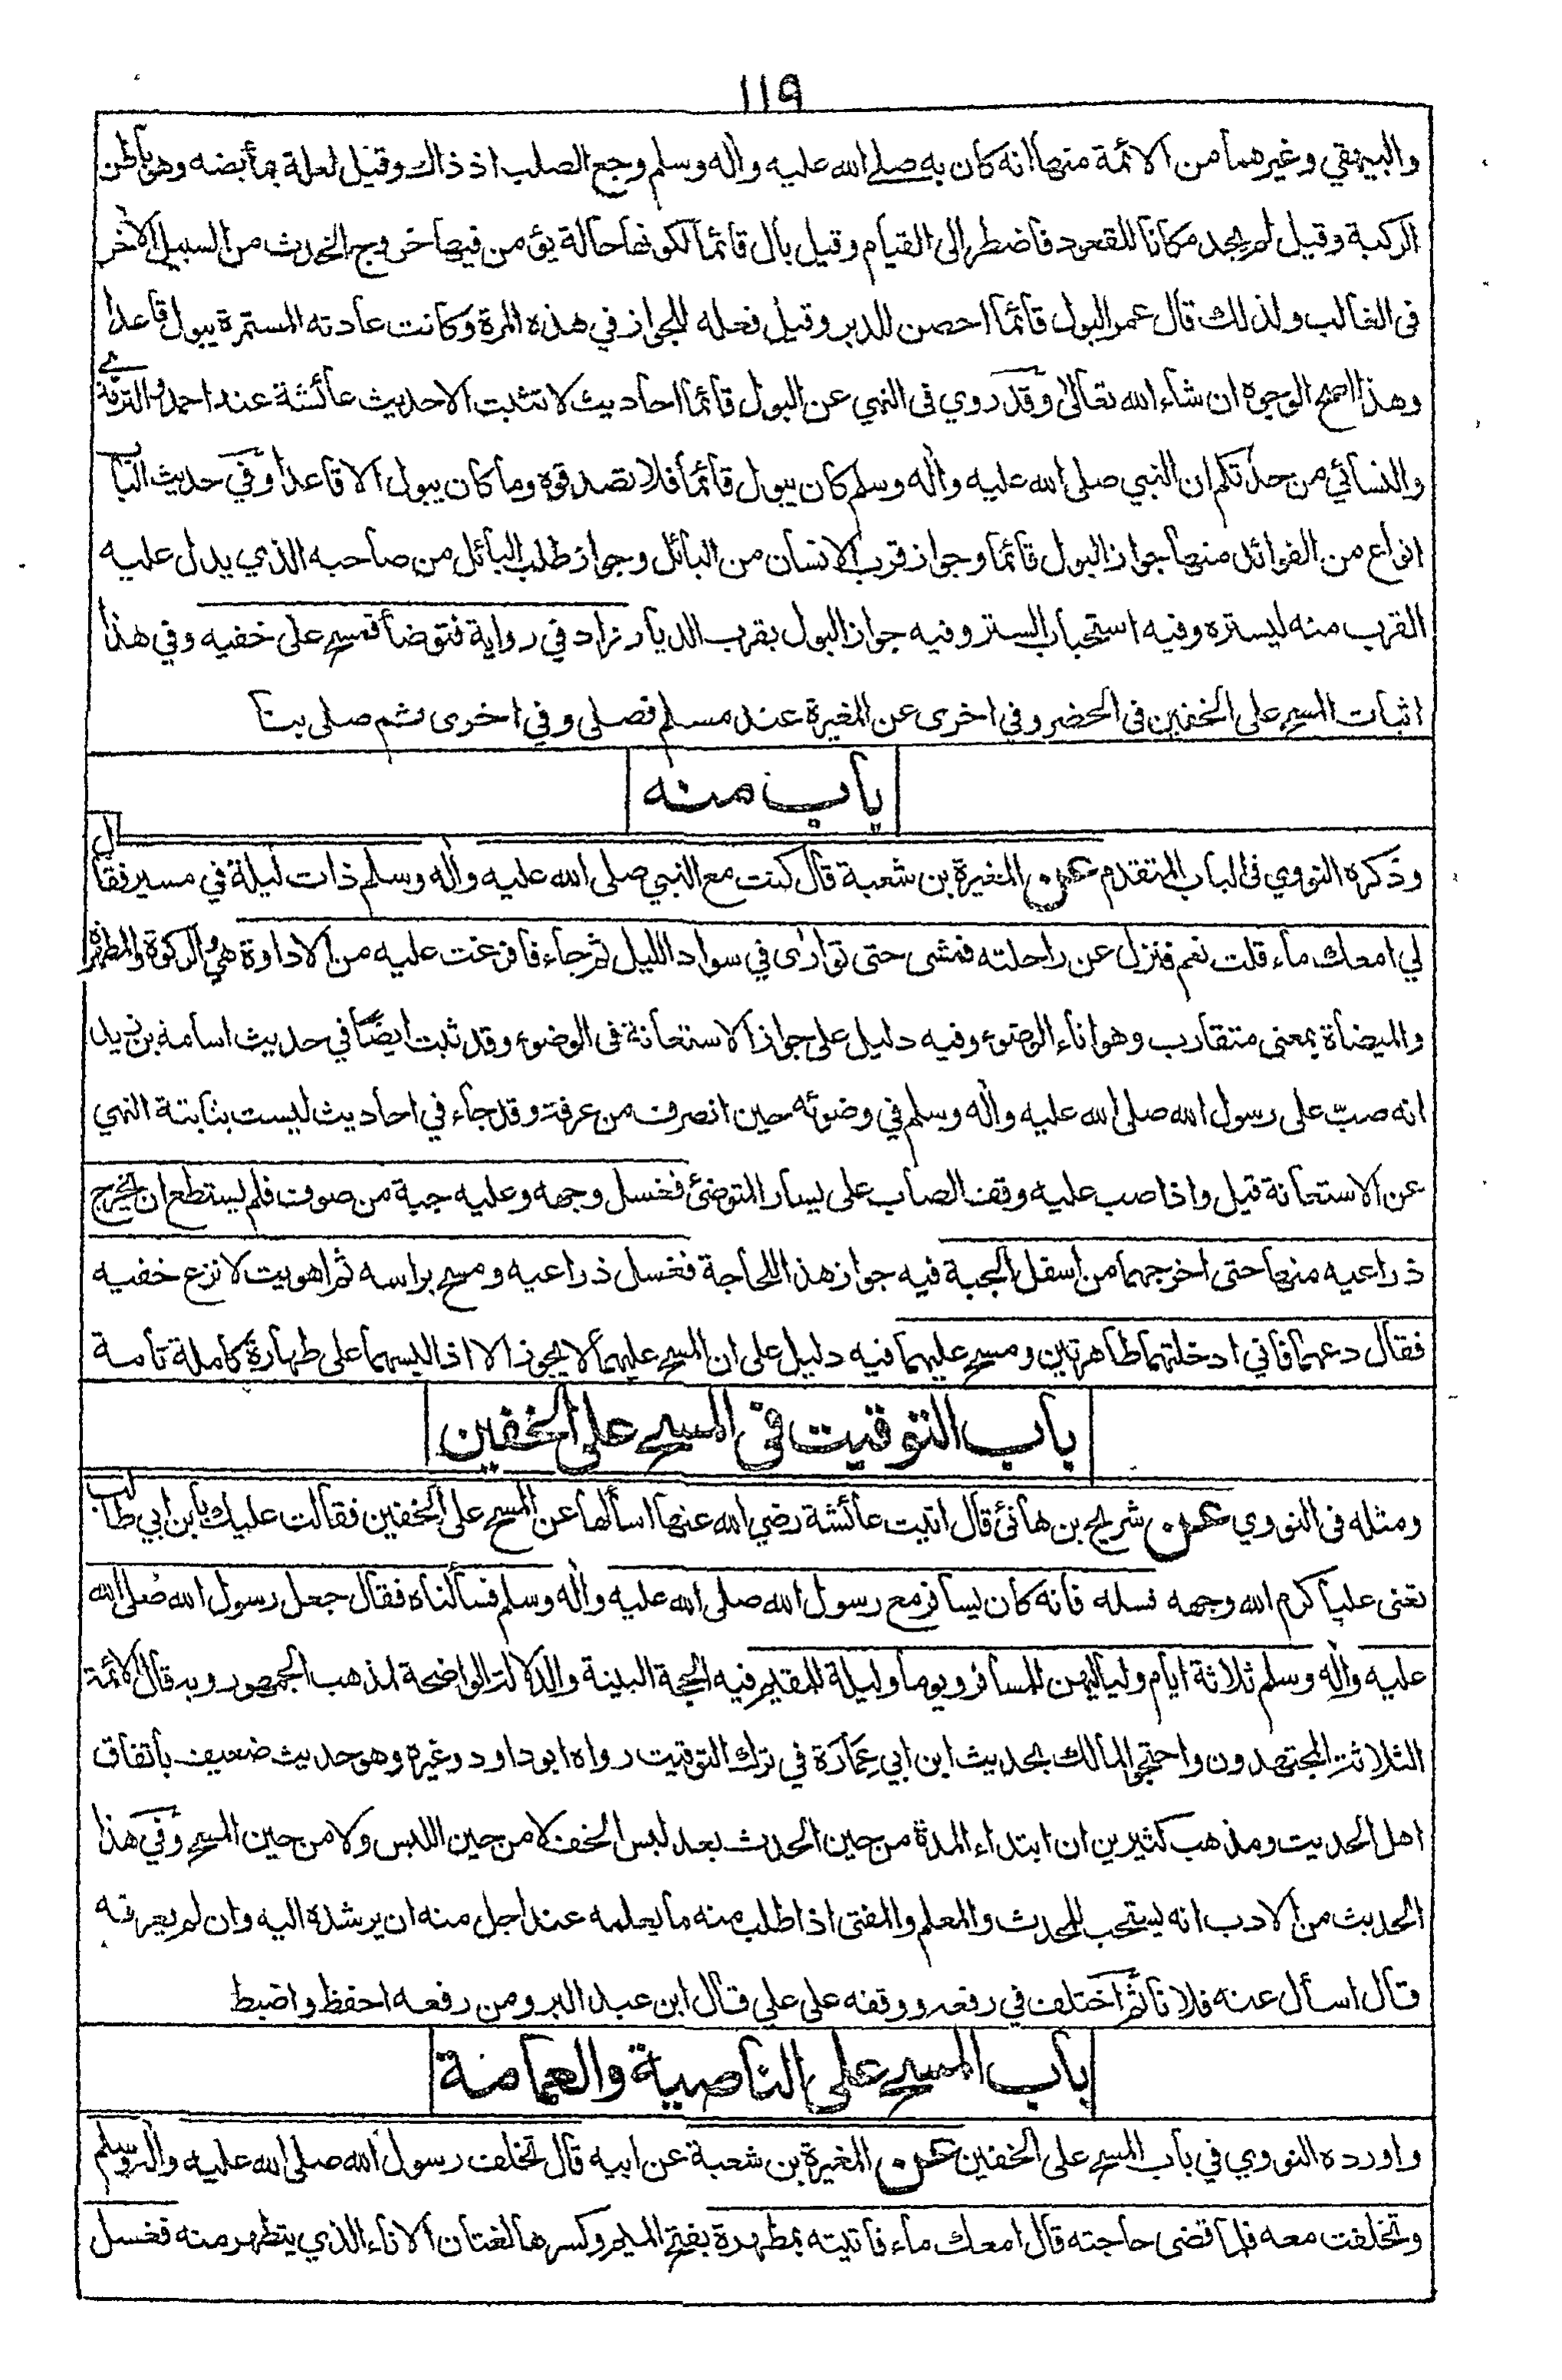 ١١٩
والبيهقي وغيرهما من الائمة منها انه كان به صلے الله عليه واٰله وسلم وجع الصلب اذ ذاك وقيل لعلة بمأبضه وهو باطن
الركبة وقيل لم يجد مكانا للقعود فاضطر الى القيام وقيل بال قائما لكونها حالة يؤمن فيها خروج الحدث من السبيل الاٰخر
فى الغالب ولذلك قال عمر البول قائما احصن للدبر وقيل فعله للجواز في هذه المرة وكانت عادته المستمرة يبول قاعدا
وهذا اصح الوجوه ان شاء الله تعالى وقد روي فى النهي عن البول قائما احاديث لا تثبت الا حديث عائشة عند احمد والترمذي
والنسائي من حدثكم ان النبي صلى الله عليه واٰله وسلم كان يبول قائما فلا تصدقوه وما كان يبول الا قاعدا وفي حديث الباب
انواع من الفوائد منها جواز البول قائما وجواز قرب الانسان من البائل وجواز طلب البائل من صاحبه الذي يدل عليه
القرب منه ليستره وفيه استحباب الستر وفيه جواز البول بقرب الديار زاد في رواية فتوضأ فمسح على خفيه وفي هذا
اثبات المسح على الخفين فى الحضر وفي اخرى عن المغيرة عند مسلم فصلى وفي اخرى ثم صلى بنا
باب منه
وذكره النووي فى الباب المتقدم عن المغيرة بن شعبة قال كنت مع النبي صلى الله عليه واٰله وسلم ذات ليلة في مسير فقال
لي امعك ماء قلت نعم فنزل عن راحلته فمشى حتى توارى في سواد الليل ثم جاء فافرغت عليه من الاداوة هي والركوة والمطهرة
والميضاة بمعنى متقارب وهو اناء الوضوء وفيه دليل على جواز الاستعانة فى الوضوء وقد ثبت ايضا في حديث اسامة بن زيد
انه صبّ على رسول الله صلى الله عليه واٰله وسلم في وضوئه حين انصرف من عرفة وقد جاء في احاديث ليست بثابتة النهي
عن الاستعانة قيل واذا صب عليه وقف الصاب على يسار المتوضئ فغسل وجهه وعليه جبة من صوف فلم يستطع ان يخرج
ذراعيه منها حتى اخرجهما من اسفل الجبة فيه جواز هذا للحاجة فغسل ذراعيه ومسح براسه ثم اهويت لانزع خفيه
فقال دعهما فاني ادخلتهما طاهرتين ومسح عليهما فيه دليل على ان المسح عليهما لا يجوز الا اذا لبسهما على طهارة كاملة تامة
باب التوقيت فى المسح على الخفين
ومثله فى النووي عن شريح بن هانئ قال اتيت عائشة رضي الله عنها اسألها عن المسح على الخفين فقالت عليك بابن ابي طالب
تعنى عليا كرم الله وجهه فسله فانه كان يسافر مع رسول الله صلى الله عليه واٰله وسلم فسألناه فقال جعل رسول الله صلى الله
عليه واٰله وسلم ثلاثة ايام ولياليهن للمسافر ويوما وليلة للمقيم فيه الحجة البينة والدلالة الواضحة لمذهب الجمهور وبه قال الائمة
الثلاثة المجتهدون واحتج لمالك بحديث ابن ابي عمارة في ترك التوقيت رواه ابو داود وغيره وهو حديث ضعيف باتفاق
اهل الحديث ومذهب كثيرين ان ابتداء المدة من حين الحدث بعد لبس الخف لا من حين اللبس ولا من حين المسح وفي هذا
الحديث من الادب انه يستحب للمحدث والمعلم والمفتى اذا طلب منه ما يعلمه عند اجل منه ان يرشده اليه وان لم يعرفه
قال اسأل عنه فلانا ثم اختلف في رفعه ووقفه على علي قال ابن عبد البر ومن رفعه احفظ واضبط
باب المسح على الناصية والعمامة
واورده النووي في باب المسح على الخفين عن المغيرة بن شعبة عن ابيه قال تخلف رسول الله صلى الله عليه واٰله وسلم
وتخلفت معه فلما قضى حاجته قال امعك ماء فاتيته بمطهرة بفتح الميم وكسرها لغتان الاناء الذي يتطهر منه فغسل